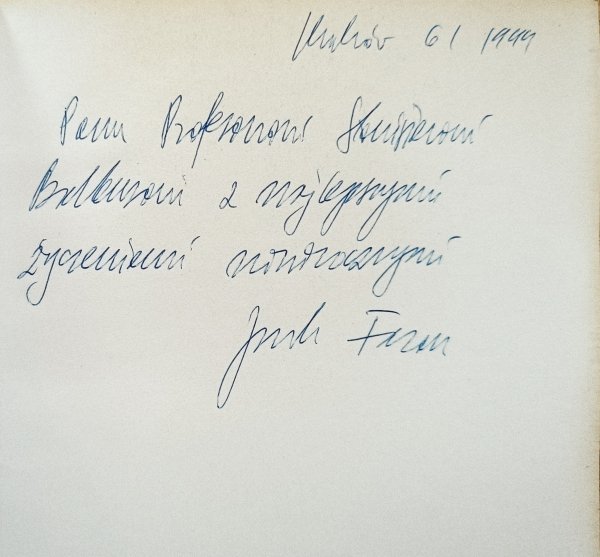 Kraków 6 I 1999
Panu Profesorowi Stanisławowi
Balbusowi z najlepszymi
życzeniami noworocznymi
Faron